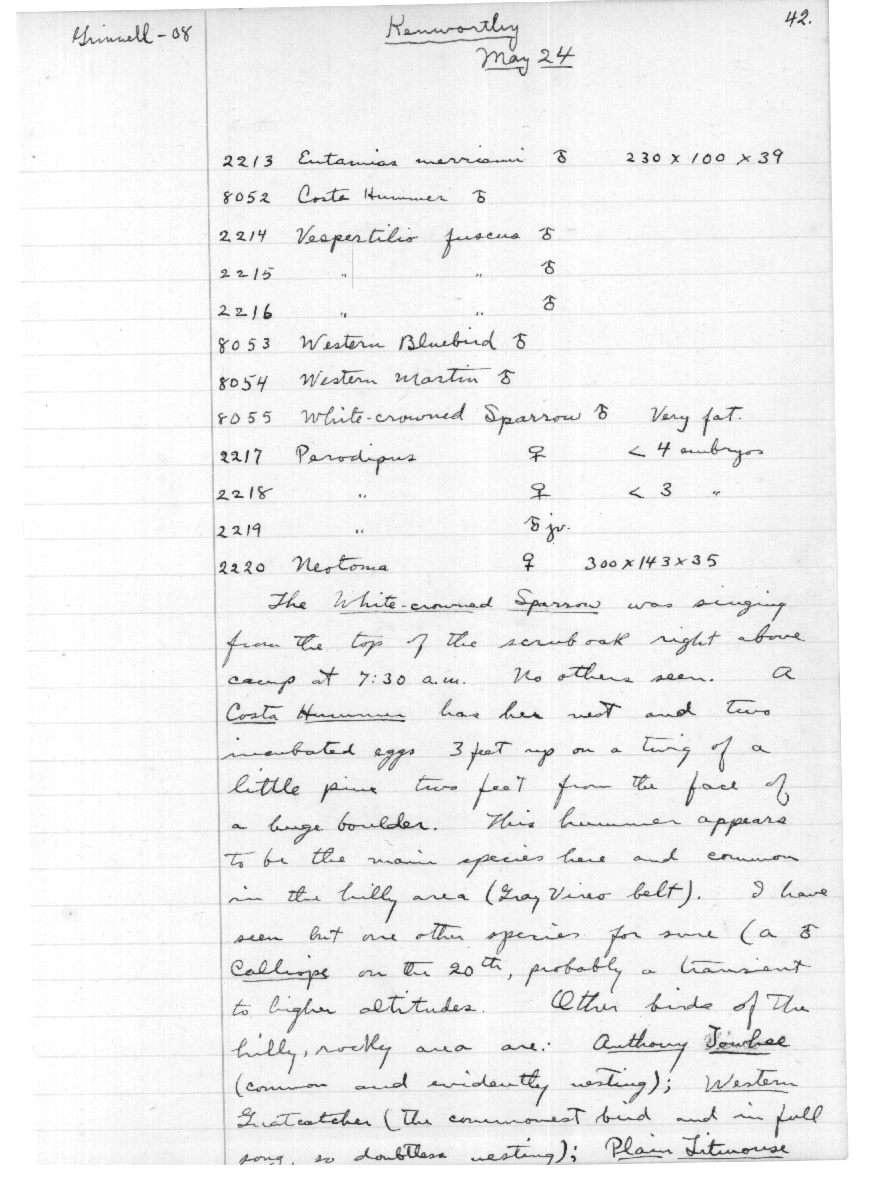 Grinnell - 08
Kenworthy
42.
May 24
2213 Eutamias merriami ♂ 230 x 100 x 39
8052 Costa Hummer ♂
2214 Vespertilio fuscus ♂
2215 " " ♂
2216 " " ♂
8053 Western Bluebird ♂
8054 Western Martin ♂
8055 White-crowned Sparrow ♂ Very fat.
2217 Perodipus ♀ < 4 embryos
2218 " ♀ < 3 "
2219 " ♂ jv.
2220 Neotoma ♀ 300 x 143 x 35
The White-crowned Sparrow was singing
from the top of the scrub oak right above
camp at 7:30 a.m. No others seen. A
Costa Hummer has her nest and two
incubated eggs 3 feet up on a twig of a
little pine two feet from the face of
a huge boulder. This hummer appears
to be the main species here and common
in the hilly area (Gray Vireo belt). I have
seen but one other species for sure (a ♂
Calliope on the 20th, probably a transient
to higher altitudes. Other birds of the
hilly, rocky area are: Anthony Towhee
(common and evidently nesting); Western
Gnatcatcher (the commonest bird and in full
song, so doubtless nesting); Plain Titmouse